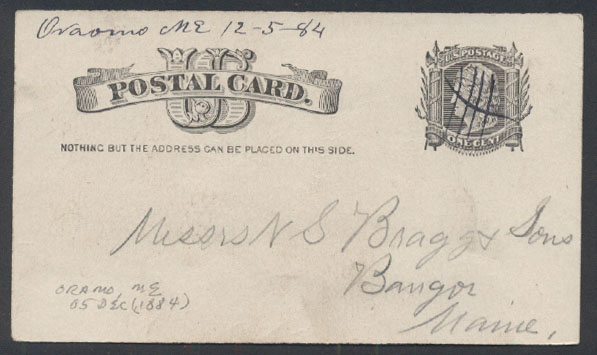 Oraomo ME 12-5-84
US
POSTAL CARD.
U.S. POSTAGE
ONE CENT
NOTHING BUT THE ADDRESS CAN BE PLACED ON THIS SIDE.
Messrs N S Bragg & Sons
Bangor
Maine,
ORAMO, ME
05 DEC (1884)